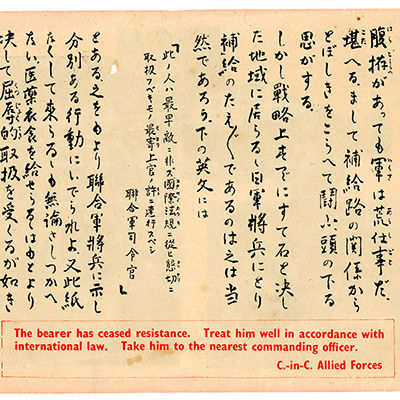 腹拵があっても軍は荒仕事だ、
堪へる。まして補給路の関係から
とぼしきをこらへて鬪ふ、頭の下る
思がする。
しかし戦略上すでにすて石と決し
た地域に居らるゝ日軍將兵にとり
補給のたえ〴〵であるのは之は当
然であらう、下の英文には
「此ノ人ハ最早敵ニ非ズ國際法規ニ從ヒ懇切ニ
取扱フベキモノ最寄上官ノ許ニ連行スベシ
聯合軍司令官」
とある、之をもより聯合軍將兵に示し
分別ある行動にいでられよ、又此紙
なくして来らるゝも無論さしつかへ
ない、医薬衣食を給せらるゝはもとより
決して屈辱的取扱を受くるが如き
The bearer has ceased resistance. Treat him well in accordance with
international law. Take him to the nearest commanding officer.
C.-in-C. Allied Forces